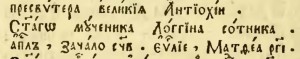 пресвѵ́тера вели́кїѧ а҆нтїохі́и .
Ст҃а́гѡ мч҃еника ло́ггїна со́тника .
а҆пⷭ҇лъ , Зача́ло сч҃в . є҆ѵⷢ҇лїе , Матѳе́а рг҃і .